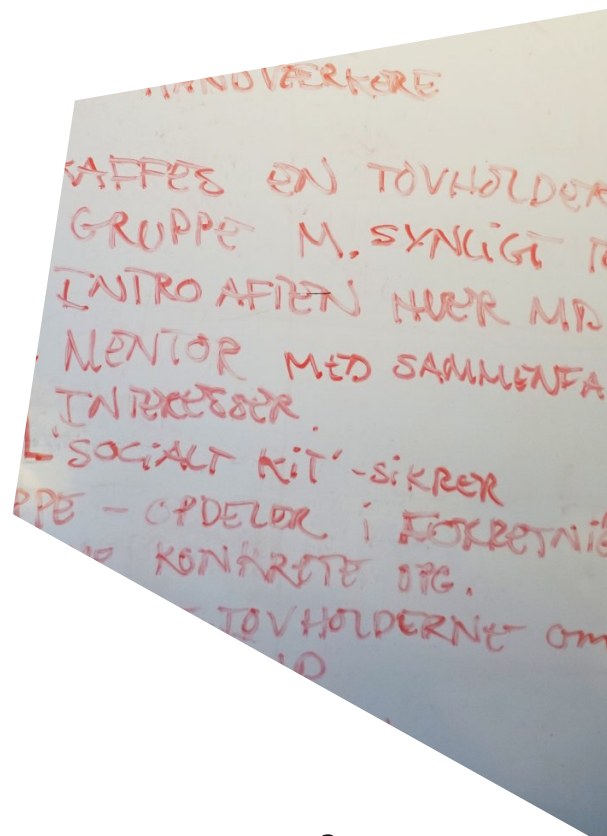 HÅNDVÆRKERE
KAFFES EN TOVHOLDER
GRUPPE M. SYNLIGT
INTRO AFTEN HVER MD
MENTOR MED SAMMENFA
INTERESSER.
"SOCIALT KIT" - SIKRER
PPE - OPDELER i FORRETNI
KONKRETE OPG.
TOVHOLDERNE om